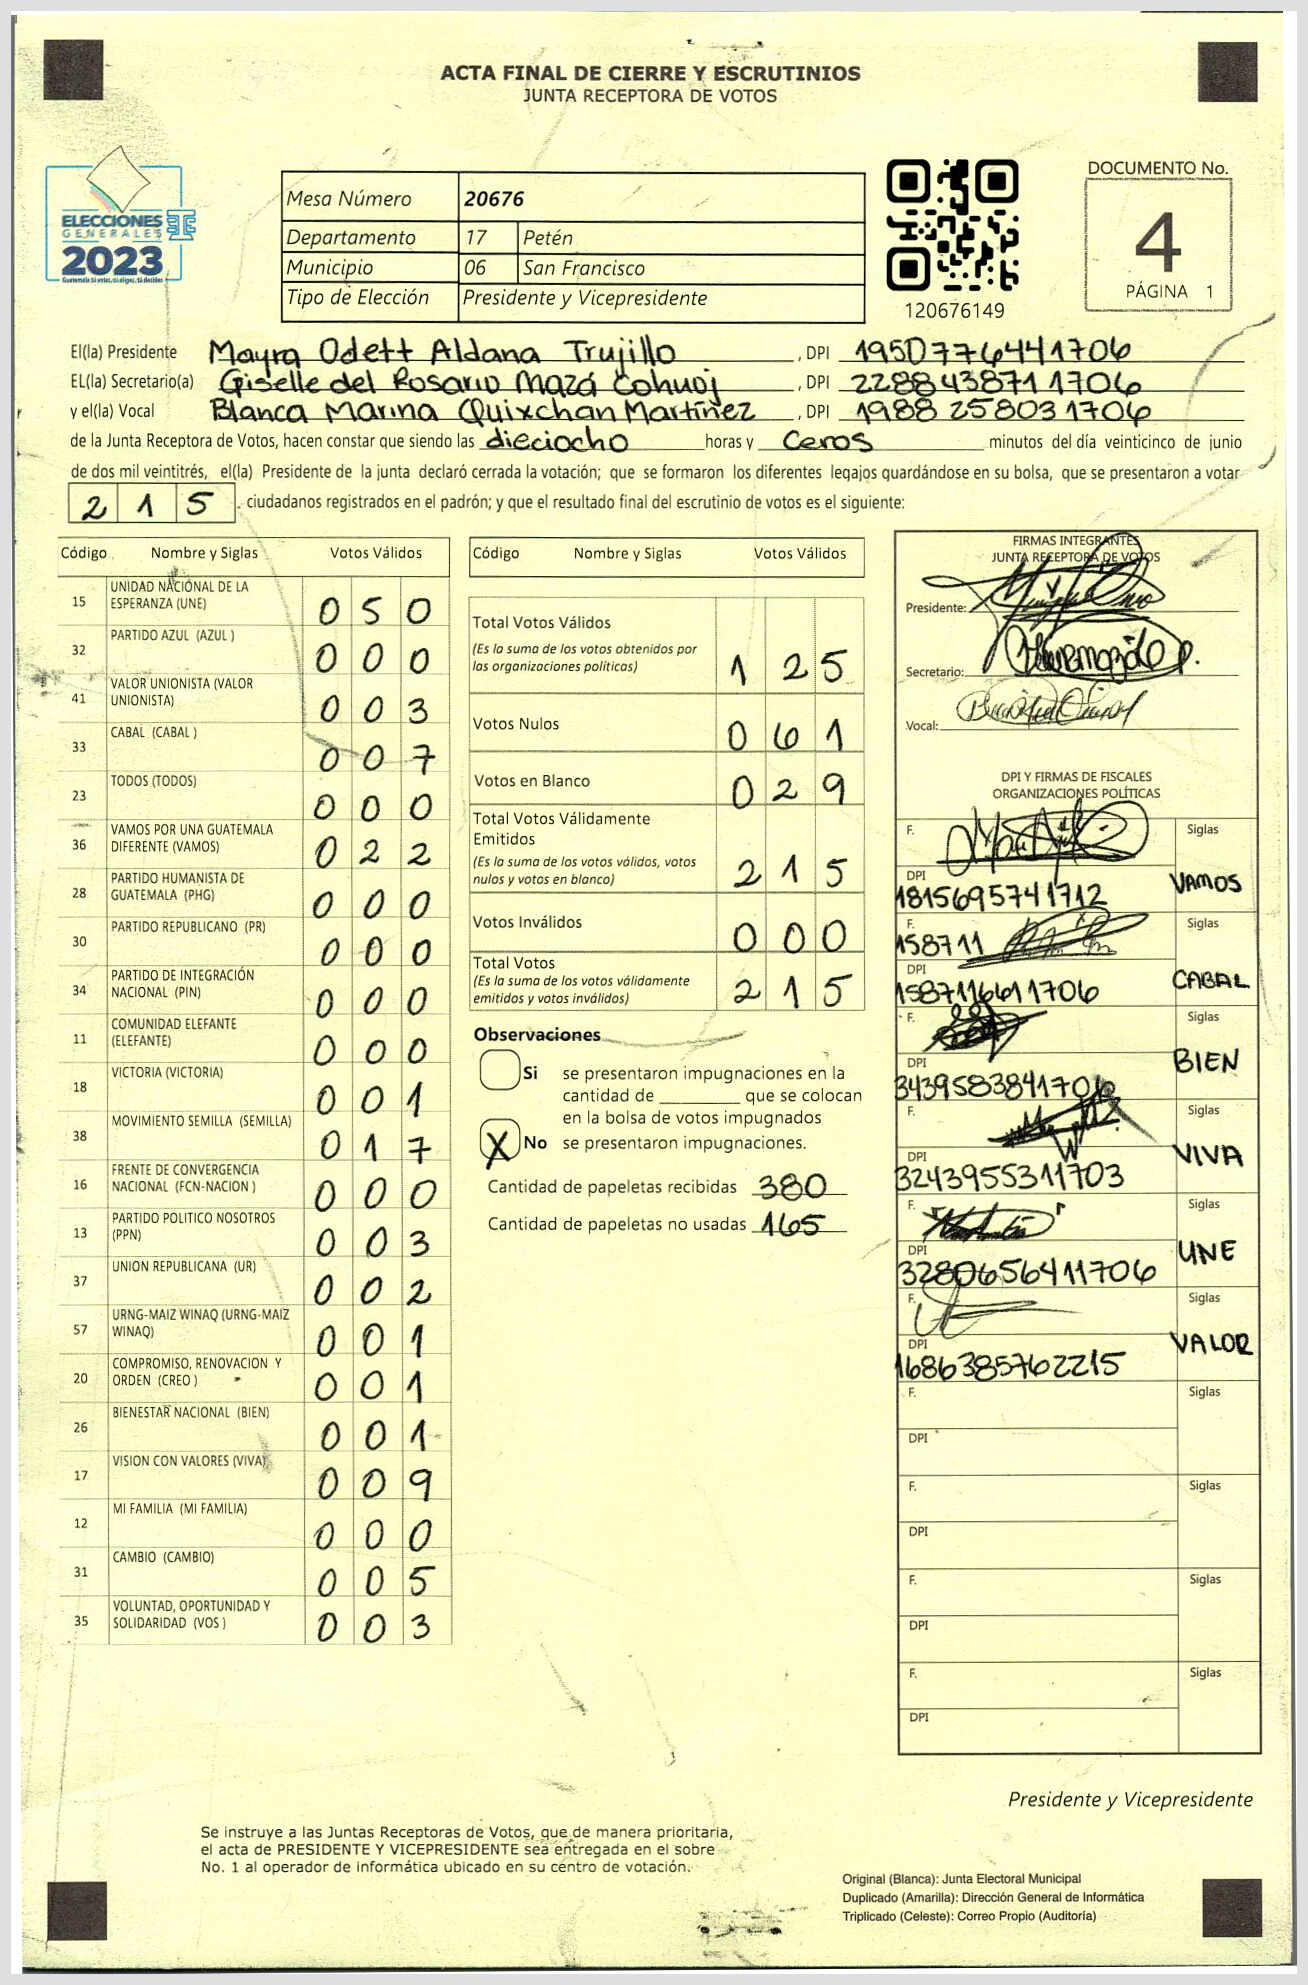 ACTA FINAL DE CIERRE Y ESCRUTINIOS
JUNTA RECEPTORA DE VOTOS
ELECCIONES
GENERALES
2023
Guatemala tú votas, tú eliges, tú decides
Mesa Número 20676
Departamento 17 Petén
Municipio 06 San Francisco
Tipo de Elección Presidente y Vicepresidente
120676149
DOCUMENTO No.
4
PÁGINA 1
El(la) Presidente Mayra Odett Aldana Trujillo , DPI 1950776441706
EL(la) Secretario(a) Giselle del Rosario Mazá Cohuoj , DPI 2288438711706
y el(la) Vocal Blanca Marina Quixchan Martínez , DPI 1988258031706
de la Junta Receptora de Votos, hacen constar que siendo las dieciocho horas y Ceros minutos del día veinticinco de junio
de dos mil veintitrés, el(la) Presidente de la junta declaró cerrada la votación; que se formaron los diferentes legajos guardándose en su bolsa, que se presentaron a votar
215 . ciudadanos registrados en el padrón; y que el resultado final del escrutinio de votos es el siguiente:
Código Nombre y Siglas Votos Válidos
15 UNIDAD NACIONAL DE LA ESPERANZA (UNE) 050
32 PARTIDO AZUL (AZUL ) 000
41 VALOR UNIONISTA (VALOR UNIONISTA) 003
33 CABAL (CABAL ) 007
23 TODOS (TODOS) 000
36 VAMOS POR UNA GUATEMALA DIFERENTE (VAMOS) 022
28 PARTIDO HUMANISTA DE GUATEMALA (PHG) 000
30 PARTIDO REPUBLICANO (PR) 000
34 PARTIDO DE INTEGRACIÓN NACIONAL (PIN) 000
11 COMUNIDAD ELEFANTE (ELEFANTE) 000
18 VICTORIA (VICTORIA) 001
38 MOVIMIENTO SEMILLA (SEMILLA) 017
16 FRENTE DE CONVERGENCIA NACIONAL (FCN-NACION ) 000
13 PARTIDO POLITICO NOSOTROS (PPN) 003
37 UNION REPUBLICANA (UR) 002
57 URNG-MAIZ WINAQ (URNG-MAIZ WINAQ) 001
20 COMPROMISO, RENOVACION Y ORDEN (CREO ) 001
26 BIENESTAR NACIONAL (BIEN) 001
17 VISION CON VALORES (VIVA) 009
12 MI FAMILIA (MI FAMILIA) 000
31 CAMBIO (CAMBIO) 005
35 VOLUNTAD, OPORTUNIDAD Y SOLIDARIDAD (VOS ) 003
Código Nombre y Siglas Votos Válidos
Total Votos Válidos
(Es la suma de los votos obtenidos por
las organizaciones políticas) 125
Votos Nulos 061
Votos en Blanco 029
Total Votos Válidamente
Emitidos
(Es la suma de los votos válidos, votos
nulos y votos en blanco) 215
Votos Inválidos 000
Total Votos
(Es la suma de los votos válidamente
emitidos y votos inválidos) 215
Observaciones
Si se presentaron impugnaciones en la
cantidad de ________ que se colocan
en la bolsa de votos impugnados
X No se presentaron impugnaciones.
Cantidad de papeletas recibidas 380
Cantidad de papeletas no usadas 165
FIRMAS INTEGRANTES
JUNTA RECEPTORA DE VOTOS
Presidente:
Secretario:
Vocal:
DPI Y FIRMAS DE FISCALES
ORGANIZACIONES POLÍTICAS
F. Siglas
DPI 1815695741712 VAMOS
F. 158711 Siglas
DPI 1587116611706 CABAL
F. Siglas
DPI 3439583841706 BIEN
F. Siglas
DPI 3243955311703 VIVA
F. Siglas
DPI 3280656411706 UNE
F. Siglas
DPI 1686385762215 VALOR
F. Siglas
DPI
F. Siglas
DPI
F. Siglas
DPI
F. Siglas
DPI
Presidente y Vicepresidente
Se instruye a las Juntas Receptoras de Votos, que de manera prioritaria,
el acta de PRESIDENTE Y VICEPRESIDENTE sea entregada en el sobre
No. 1 al operador de informática ubicado en su centro de votación.
Original (Blanca): Junta Electoral Municipal
Duplicado (Amarilla): Dirección General de Informática
Triplicado (Celeste): Correo Propio (Auditoría)